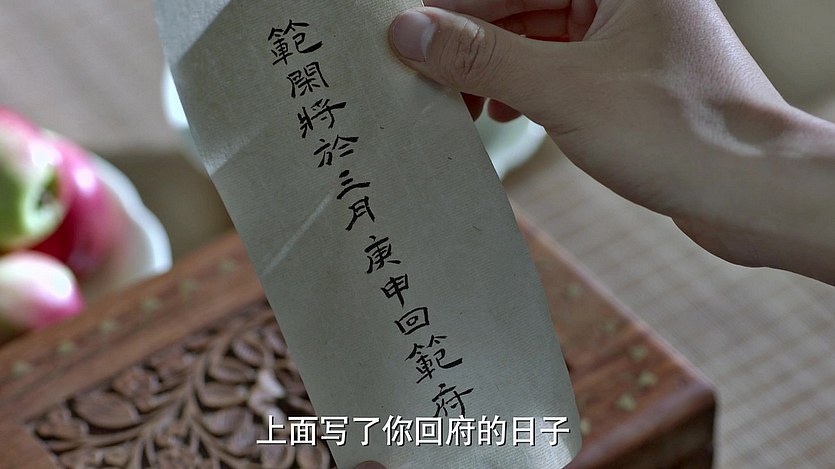 範閑將於三月庚申回範府
上面写了你回府的日子